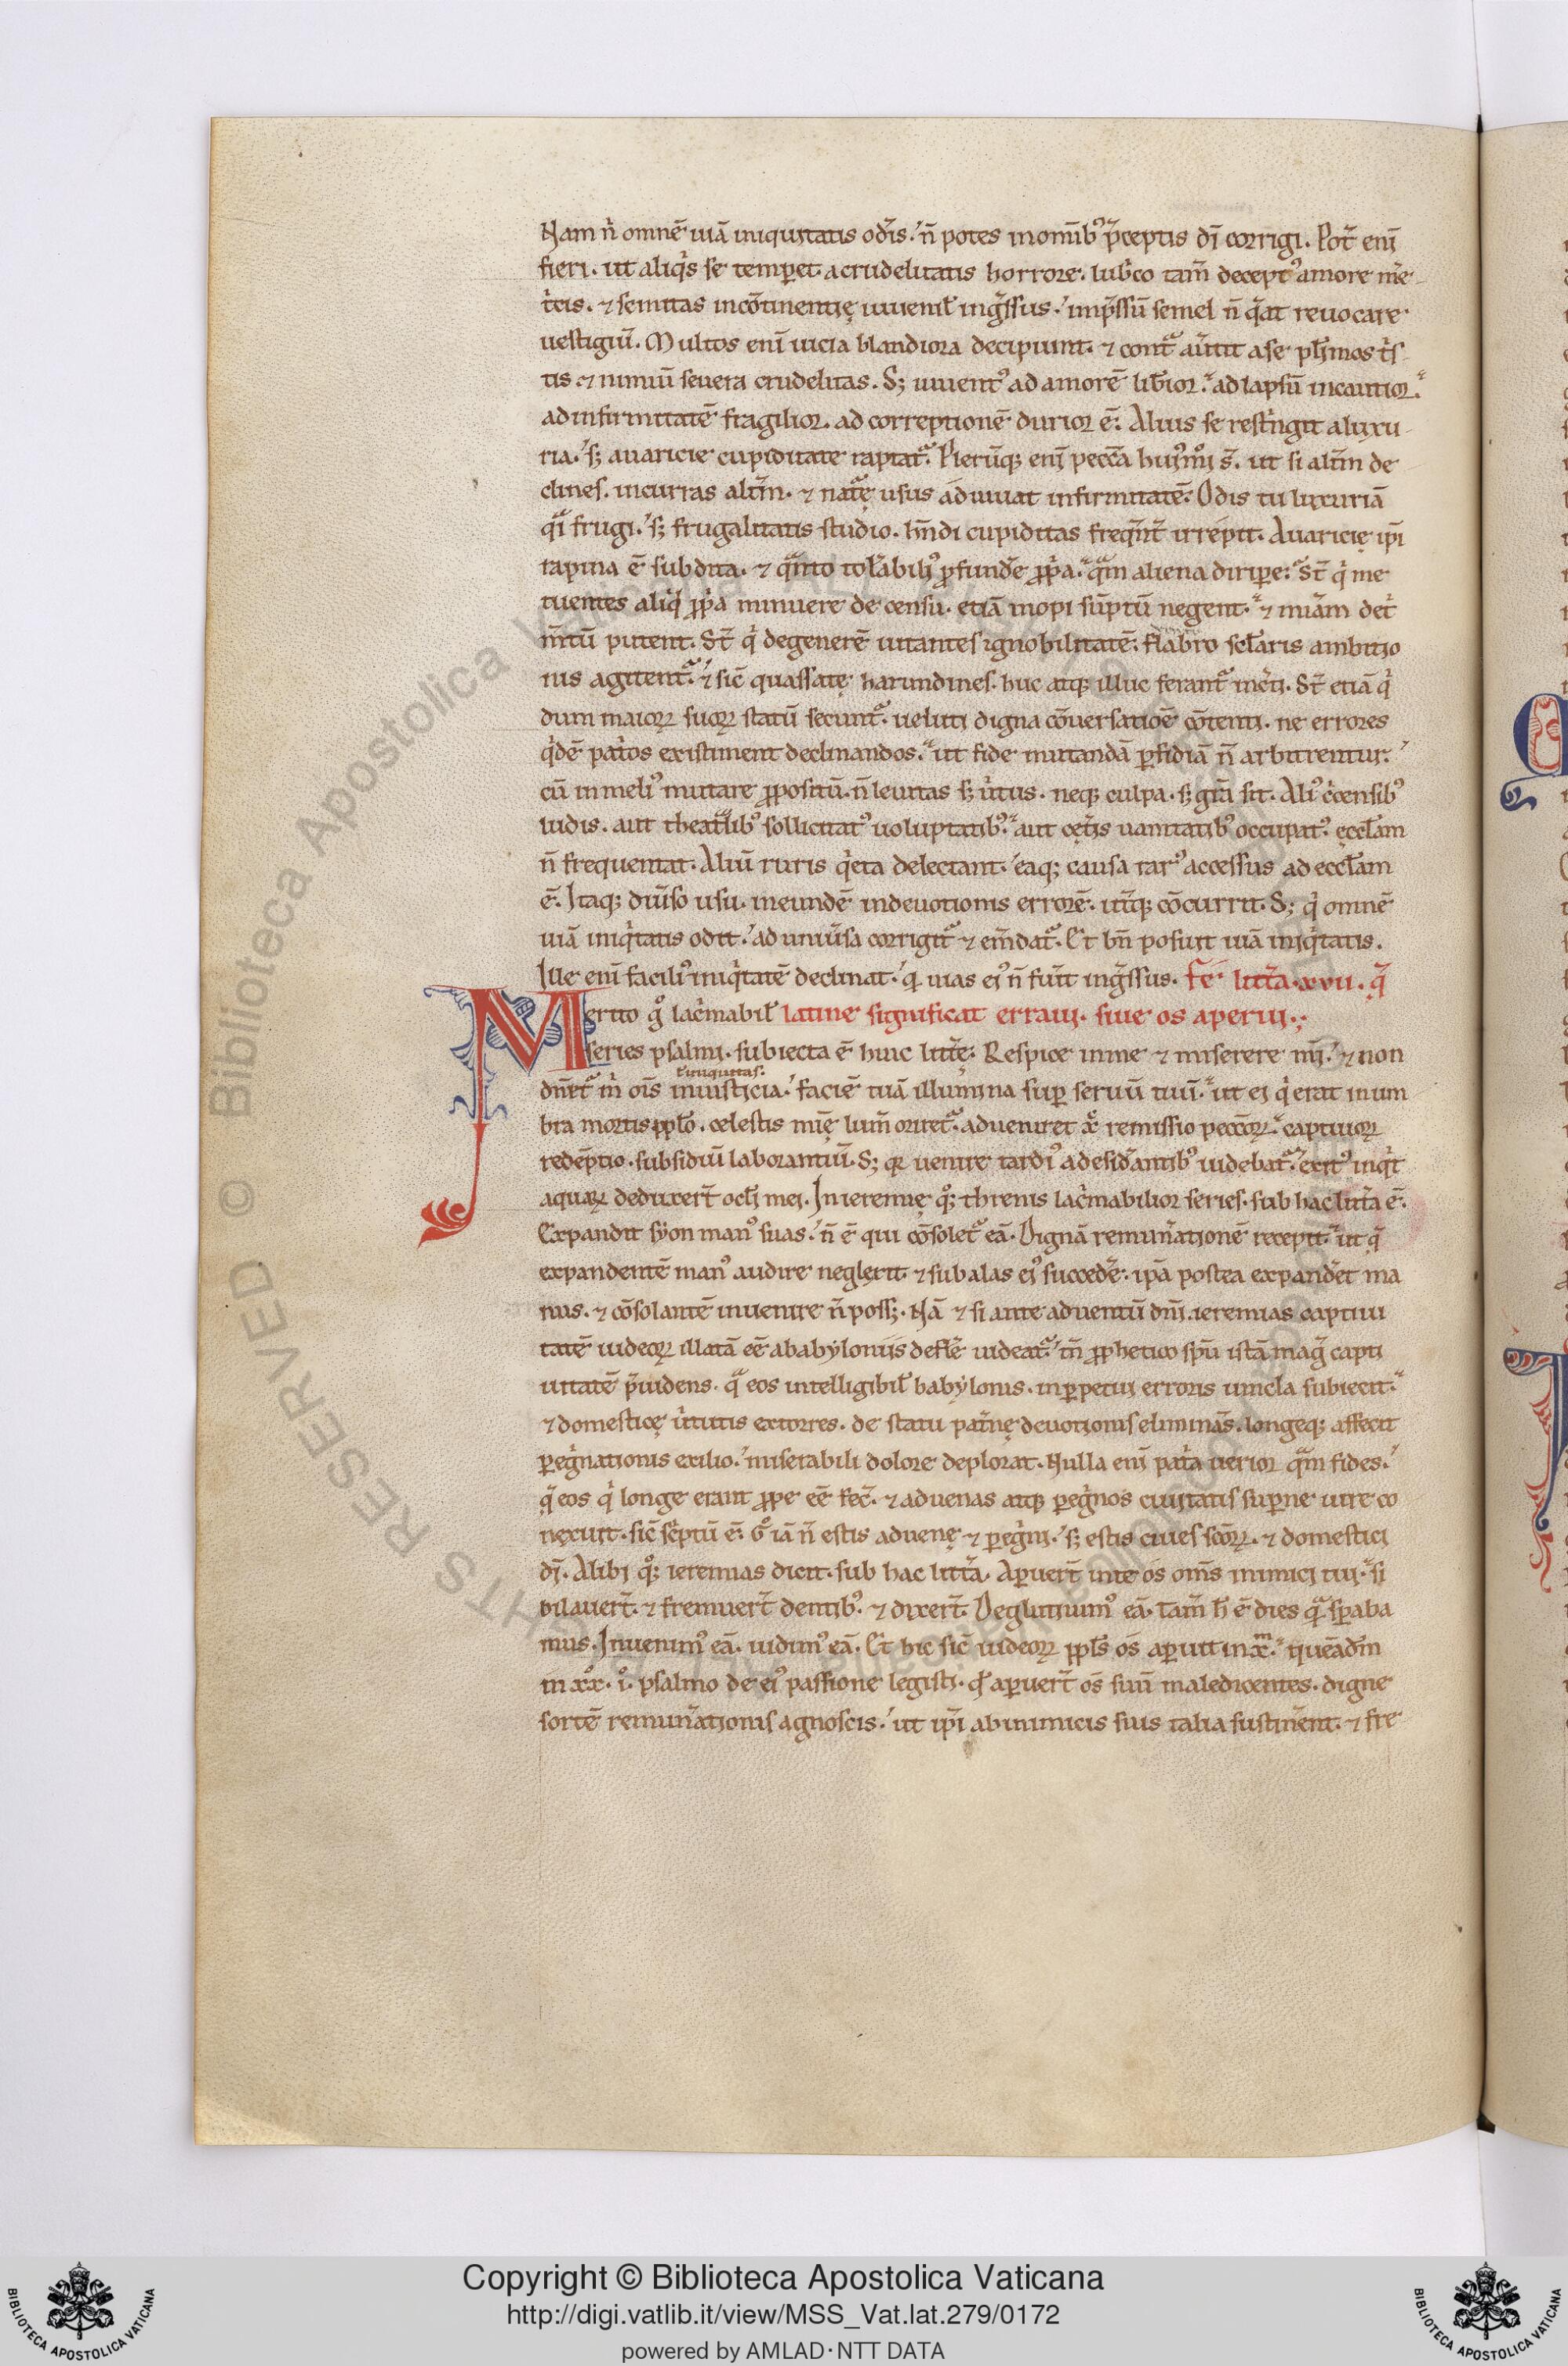 Nam n̾ omnē uiā iniquitatis od̾is. n̄ potes in omībꝰ p̾ceptis dī corrigi. Pot̾ enī
fieri. ut aliq̾s se temꝑet a crudelitatis horrore. lub̾co tam̄ deceptꝰ amore me̾
t̾cis. ⁊ semitas incōtinentię iuuenil̾ ing̾ssus. imp̾ssū semel n̄ q̾at reuocare
uestigiū. Multos enī uicia blandiora decipiunt. ⁊ cont̾ au̾tit a se
tis ⁊ nimiū seuera crudelitas. Sꝫ iuuentꝰ ad amorē lib̾ior. ad lapsū incautior.
ad infirmitatē fragilior. ad correptionē durior ē. Alius se rest̾ngit a luxu
ria. sꝫ auaricie cupiditate raptat̾. Plerūqꝫ enī peccā s̄. ut si alt̾m de
clines. incurras alt̾m. ⁊ nat̾ę usus adiuuat infirmitatē. Odis tu luxuriā
q̾i frugi. sꝫ frugalitatis studio. hn̄di cupiditas freq̾nt̾ irrepit. Auaricię ip̄i
rapina ē subdita. ⁊ q̾nto tol̾abiliꝰ ꝓfund̾e ꝓp̾a. q̾m aliena diriꝑe. St̄ q̾ me
tuentes aliq̾ ꝓp̾a minuere de censu. etiā inopi sūptū negent. ⁊ mīam det̾
m̄tū putent. St̄ q̾ degenerē uitantes ignobilitatē. flabro sc̄laris ambitio
nis agitent̾. ⁊ sic̄ quassatę harundines. huc atqꝫ illuc ferant̾ inc̾ti. St̄ etiā q̾
dum maioꝝ suoꝝ statū secunt̾. ueluti digna cōuersatiōē cōtenti. ne errores
q̾dē pat̾os existiment declinandos. ut fide mutandā ꝑfidiā n̄ arbitrentur.
cū in meliꝰ mutare ꝓpositū. n̄ leuitas sꝫ u̾tus. neqꝫ culpa. sꝫ gr̄a sit. Aliꝰ c̾censibꝰ
ludis. aut theat̾libꝰ sollicitatꝰ uoluptatibꝰ. aut cęt̾is uanitatibꝰ occupatꝰ. ęccl̄am
n̄ frequentat. Aliū ruris q̾eta delectant. eaqꝫ causa rarꝰ accessus ad eccl̄am
ē. Itaqꝫ diu̾so usu. in eundē indeuotionis errorē. ut̾qꝫ cōcurrit. Sꝫ q̾ omnē
uiā iniq̾tatis odit. ad uniu̾sa corrigit̾ ⁊ em̄dat̾. Et bn̄ posuit uiā iniq̾tatis.
Ille enī faciliꝰ iniq̾tatē declinat. q̾ uias eiꝰ n̄ fu̾it ing̾ssus. fe̾ litt̾a. xvii. q̾
Merito g̊ lac̾mabil̾ latine significat erraui. siue os aperui.
series psalmi. subiecta ē huic litt̾ę. Respice in me ⁊ miserere m̄i. ⁊ non
ł iniquitas.
dn̄et̾ m̾ oīs iniusticia. faciē tuā illumina suꝑ seruū tuū. ut ei q̾ erat in um
bra mortis ppl̄o. celestis mīę lum̄ oriret̾. adueniret xp̄o remissio peccōꝝ. captiuoꝝ
redēptio. subsidiū laborantiū. Sꝫ q̾ uenire tardiꝰ a desid̾antibꝰ uidebat̾. exitꝰ inq̾t
aquaꝝ deduxert̄ ocl̄i mei. In ieremię q̊ꝫ threnis lac̾mabilior series. sub hac litt̾a ē.
Expandit syon manꝰ suas. n̄ ē qui cōsolet̾ eā. Dignā remun̾ationē recepit. ut q̾
expandentē manꝰ audire neglexit. ⁊ sub alas eiꝰ succed̾e. ip̄a postea expand̾et ma
nus. ⁊ cōsolantē inuenire n̄ possꝫ. Nā ⁊ si ante aduentū dn̄i. ieremias captiui
tatē iudeoꝝ illatā eē a babyloniis defl̾e uideat̾. tn̄ ꝓphetico spū istā mag̾ capti
uitatē p̾uidens. q̾ eos intelligibil̾ babylonis. in ꝑpetui erroris uincla subiecit.
⁊ domesticę u̾tutis extorres. de statu pat̾nę deuotionis elimināς. longeqꝫ affecit
ꝑeg̾nationis exilio. miserabili dolore deplorat. Nulla enī pat̾a uerior q̾m fides.
q̾ eos q̾ longe erant ꝓpe eē fec̄. ⁊ aduenas atqꝫ ꝑeg̾nos ciuitatis suꝑne iure co
nexuit. sic̄ sc̾ptū ē. G̊ iā n̄ estis aduenę ⁊ ꝑeg̾ni. sꝫ estis ciues sc̄oꝝ. ⁊ domestici
dī. Alibi q̊ꝫ ieremias dicit. sub hac litt̾a. Aꝑuert̄ in te os om̄s inimici tui. si
bilauert̄. ⁊ fremuert̄ dentibꝰ. ⁊ dixert̄. Deglutiuimꝰ eā. tam̄ h̄ ē dies q̾ sꝑaba
mus. Inuenimꝰ eā. uidimꝰ eā. Et hic sic̄ iudeoꝝ ppl̄s os aꝑuit in xp̄m. quēadm̄
in xx̊. i̊. psalmo de eiꝰ passione legisti. q̾ aꝑuert̄ os suū maledicentes. digne
sortē remun̾ationis agnoscis. ut ip̄i ab inimicis suis talia sustin̾ent. ⁊ fre
RESERVED © Biblioteca Apostolica
Copyright © Biblioteca Apostolica Vaticana
http://digi.vatlib.it/view/MSS_Vat.lat.279/0172
powered by AMLAD·NTT DATA
BIBLIOTECA APOSTOLICA VATICANA
BIBLIOTECA APOSTOLICA VATICANA